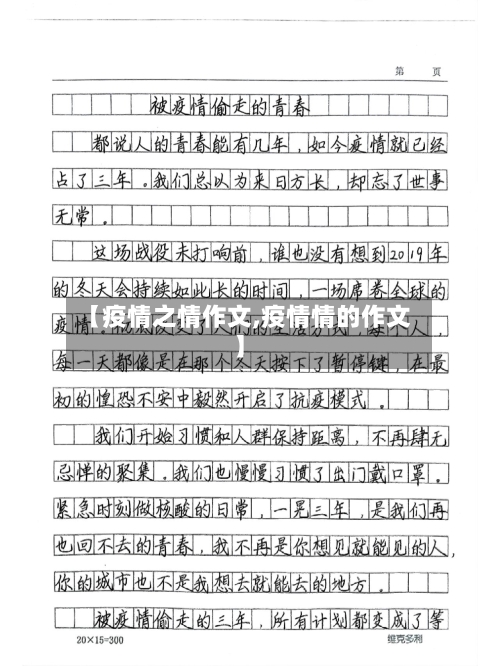 第 页
被疫情偷走的青春
都说人的青春能有几年，如今疫情就已经
占了三年。我们总以为来日方长，却忘了世事
无常。
这场战役未打响前，谁也没有想到2019年
的冬天会持续如此长的时间，一场席卷全球的
【疫情之情作文,疫情情的作文
】
疫情。 每个人，
每一天都像是在那个冬天按下了暂停键，在最
初的惶恐不安中毅然开启了抗疫模式。
我们开始习惯和人群保持距离，不再肆无
忌惮的聚集。我们也慢慢习惯了出门戴口罩。
紧急时刻做核酸的日常，一晃三年，是我们再
也回不去的青春，我不再是你想见就能见的人，
你的城市也不是我想去就能去的地方。
被疫情偷走的三年，所有计划都变成了等
20×15=300 维克多利